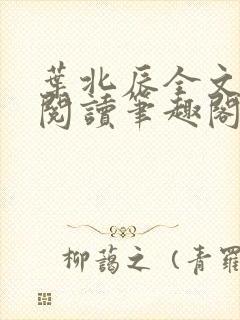 葉北辰全文
閱讀筆趣閣
柳藹之（青羅